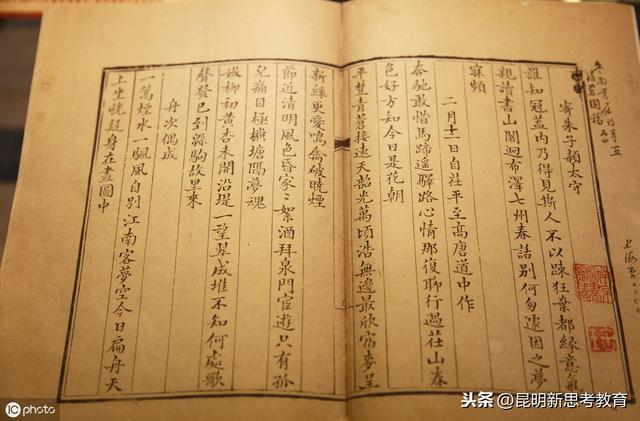 寄朱子穎太守
誰如冠蓋內乃得見斯人不以踈狂棄都緣意氣
親諸書山閣迥布澤七州春話別何匆遽因之夢
寐頻
二月十二日自茌平至高唐道中作
奔馳敢惜馬蹄遥驛路心情那復聊行過茌山春
色好方知今日是花朝
平楚青蒼接遠天韶光萬頃浩無邊最欣宿麥呈
新綠更愛鳴禽破曉煙
節近清明風色昏家〻絮酒拜泉門官遊只有孤
兒痛目極橫塘隔夢魂
嫩柳初黃杏未開沿堤一望翠成堆不知何處歌
聲發已到緜駒故里來
舟次偶成
一篙煙水一颿風自別江南客夢空今日扁舟天
上坐恍疑身在畫圖中
iC photo
头条 @昆明新思考教育